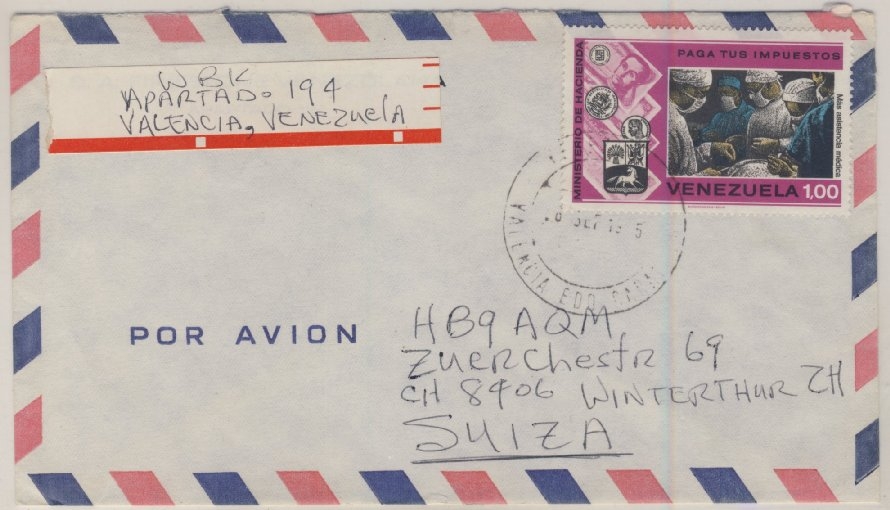 WBK
APARTADO 194
VALENCIA, VENEZUELA
PAGA TUS IMPUESTOS
MINISTERIO DE HACIENDA
Mas asistencia médica
VENEZUELA 1,00
SET
VALENCIA EDO. CARA
POR AVION
HB9AQM
ZUERChestr 69
CH 8406 WINTERTHUR ZH
SUIZA